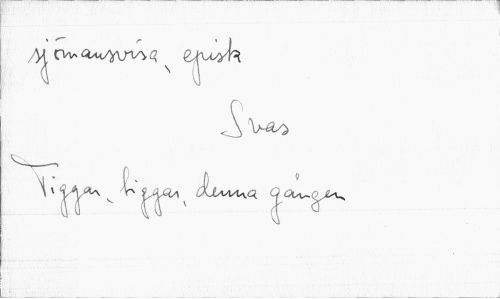 sjömansvisa, episk
Svas
Tiggar, tiggar, denna gången